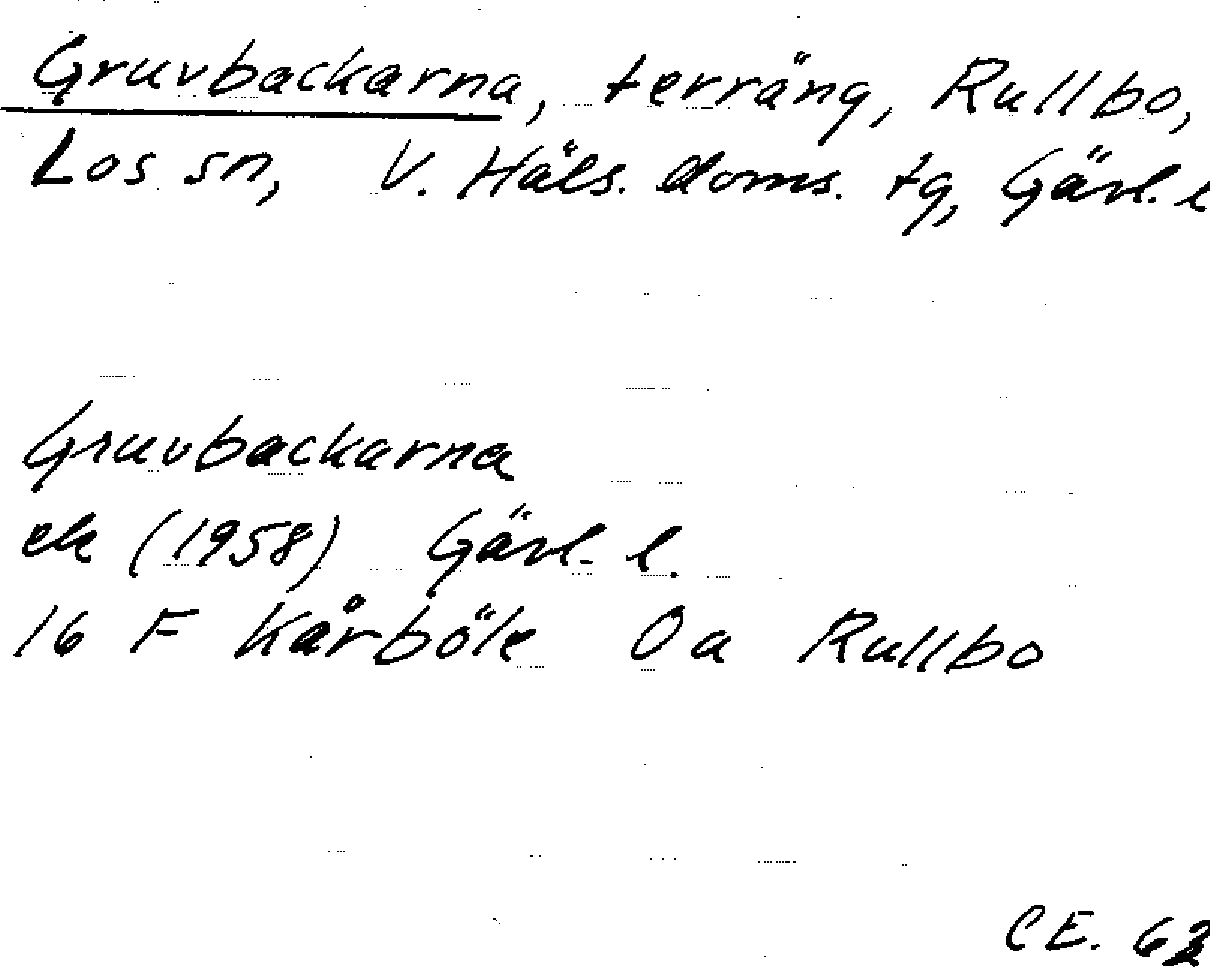 Gruvbackarna, terräng, Rullbo,
Los sn, V. Häls. doms. tg, Gävl. l
Gruvbackarna
ek (1958) Gävl. l.
16 F Kårböle 0a Rullbo
CE. 62